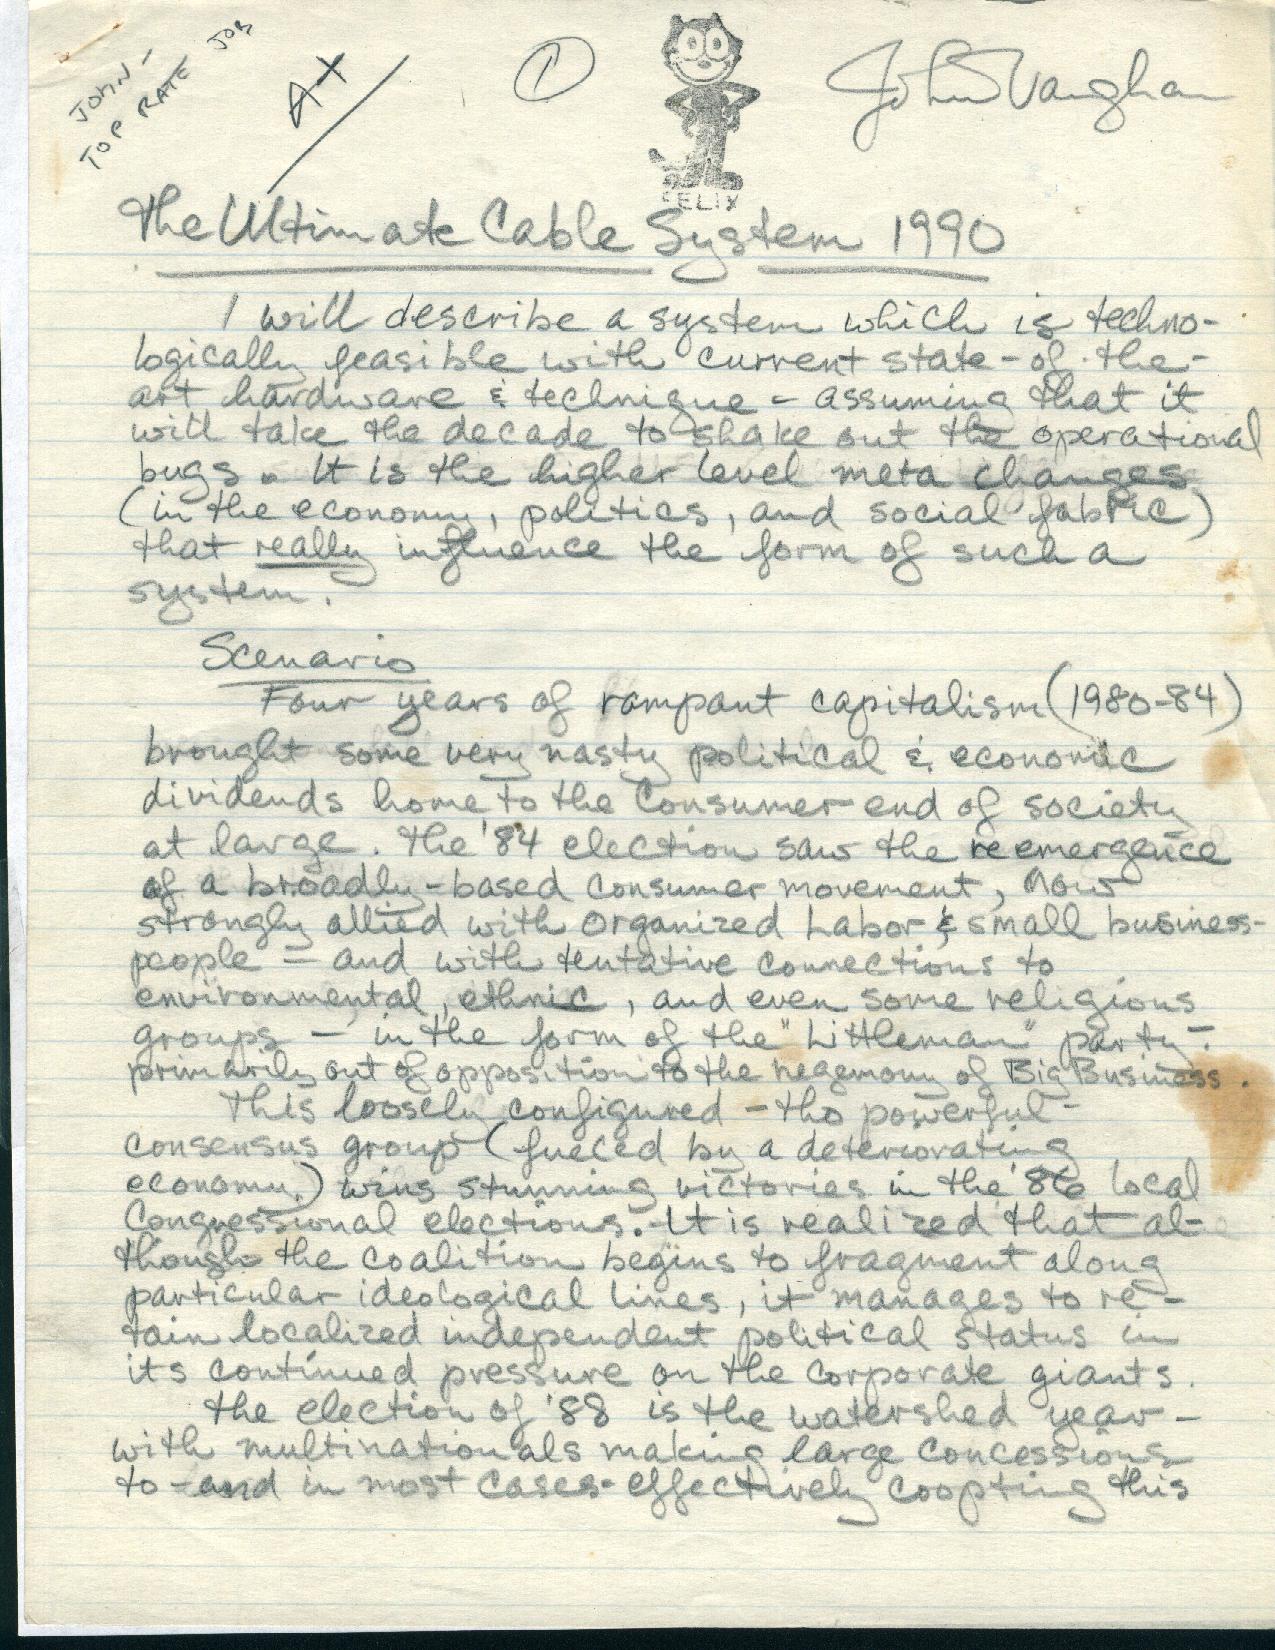 JOHN -
TOP RATE JOB
A+
1
John Vaughan
FELIX
The Ultimate Cable System 1990
I will describe a system which is techno-
logically feasible with current state-of-the-
art hardware & technique - assuming that it
will take the decade to shake out the operational
bugs. It is the higher level meta changes
(in the economy, politics, and social fabric)
that really influence the form of such a
system.
Scenario
Four years of rampant capitalism (1980-84)
brought some very nasty political & economic
dividends home to the consumer end of society
at large. The '84 election saw the reemergence
of a broadly-based consumer movement, now
strongly allied with Organized Labor & small business-
people - and with tentative connections to
environmental, ethnic, and even some religious
groups - in the form of the "Littleman" party -
primarily out of opposition to the hegemony of Big Business.
This loosely configured - tho powerful -
consensus group (fueled by a deteriorating
economy) wins stunning victories in the '86 local
Congressional elections. It is realized that al-
though the coalition begins to fragment along
particular ideological lines, it manages to re-
tain localized independent political status in
its continued pressure on the corporate giants.
The election of '88 is the watershed year -
with multinationals making large concessions
to - and in most cases - effectively coopting this